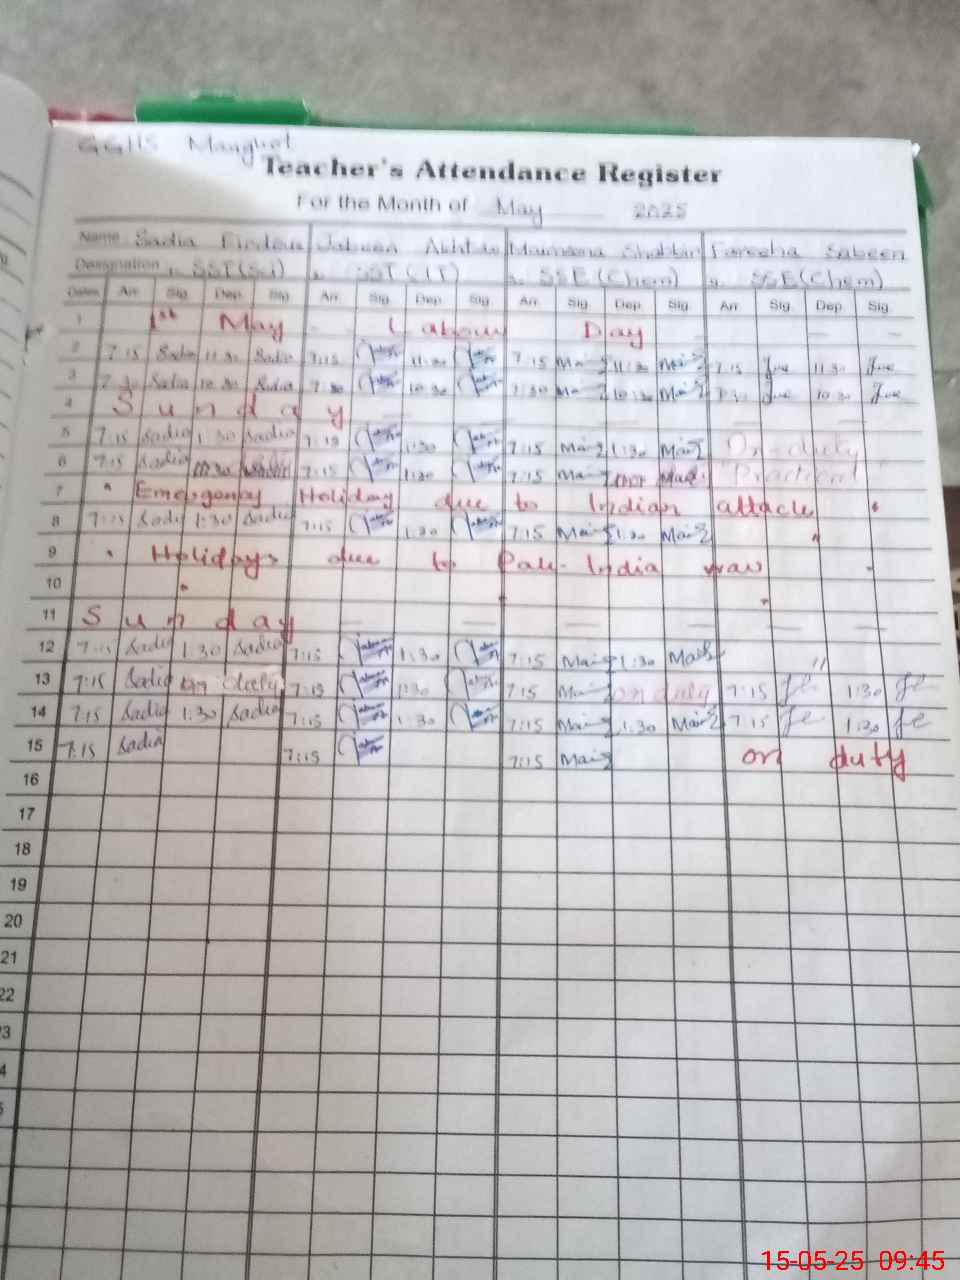 GGHS Manghot
Teacher's Attendance Register
For the Month of May 2025
Name Sadia Firdous Jabeen Akhtar Maimoona Shabbir Fareeha Sabeen
Designation SST(Sci) SST (IT) SSE (Chem) SSE(Chem)
Dates Arr. Sig. Dep. Sig. Arr. Sig. Dep. Sig. Arr. Sig. Dep. Sig. Arr. Sig. Dep. Sig.
1 1st May Labour Day
2 7:15 Sadia 11:30 Sadia 7:15 11:30 7:15 11:30 7:15 11:30
3 7:30 Sadia 10:30 Sadia 7:30 10:30 7:30 10:30 7:30 10:30
4 Sunday
5 7:15 Sadia 1:30 Sadia 7:15 1:30 7:15 1:30 On-duty
6 7:15 Sadia 7:15 1:30 7:15 Practical
7 Emergency Holiday due to Indian attack
8 7:15 Sadia 1:30 Sadia 7:15 1:30 7:15 1:30 "
9 Holidays due to Pak-India war
10
11 Sunday
12 7:15 Sadia 1:30 Sadia 7:15 1:30 7:15 1:30 "
13 7:15 Sadia on duty 7:15 1:30 7:15 on duty 7:15 1:30
14 7:15 Sadia 1:30 Sadia 7:15 1:30 7:15 1:30 7:15 1:30
15 7:15 Sadia 7:15 7:15 on duty
16
17
18
19
20
21
22
3
4
5
15-05-25 09:45